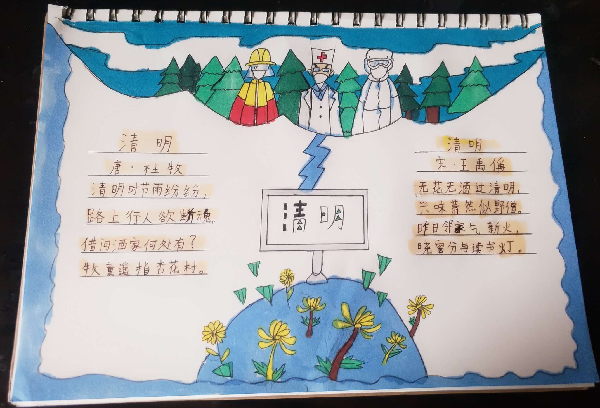 清明
唐·杜牧
清明时节雨纷纷,
路上行人欲断魂
借问酒家何处有?
牧童遥指杏花村。
清明
清明
宋·王禹偁
无花无酒过清明,
兴味萧然似野僧。
昨日邻家气新火,
晓窗分与读书灯。